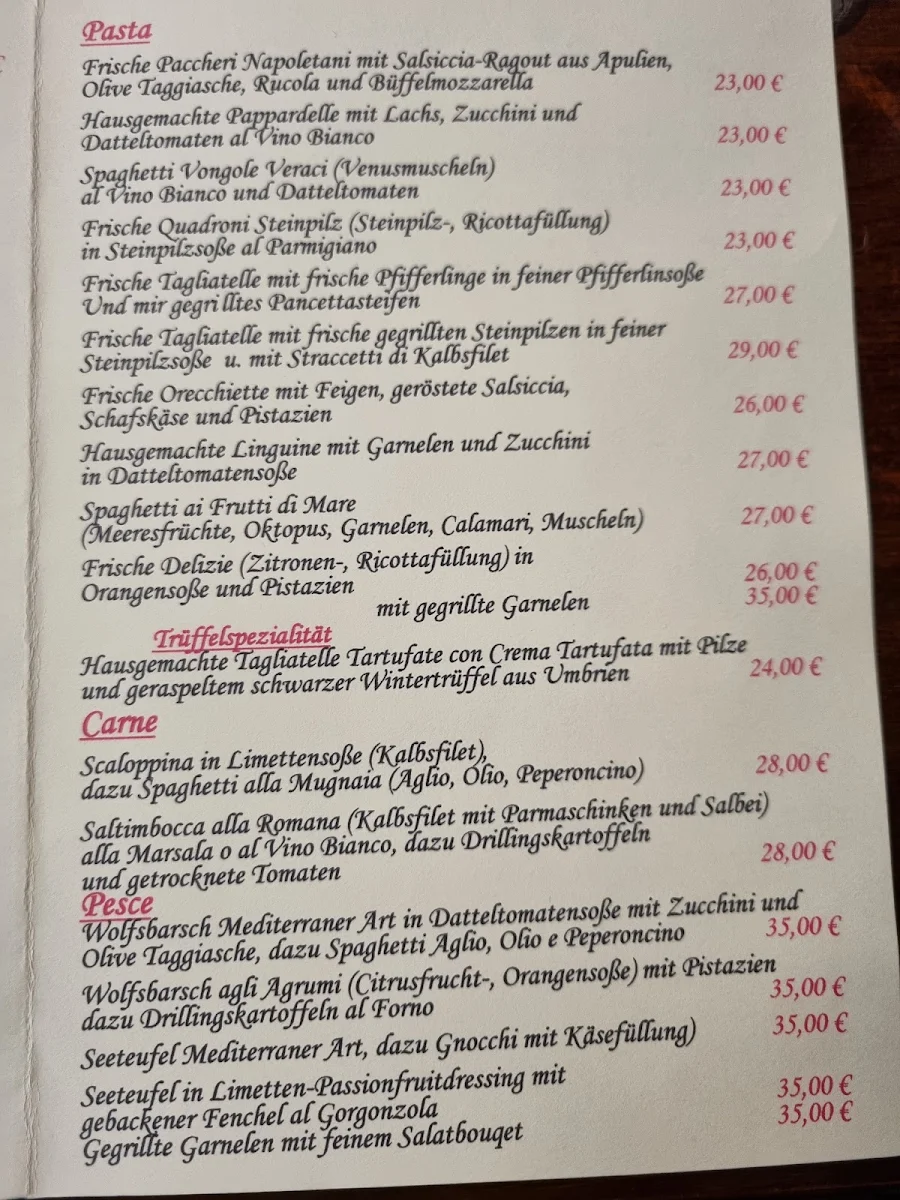 Pasta
Frische Paccheri Napoletani mit Salsiccia-Ragout aus Apulien,
Olive Taggiasche, Rucola und Büffelmozzarella 23,00 €
Hausgemachte Pappardelle mit Lachs, Zucchini und
Datteltomaten al Vino Bianco 23,00 €
Spaghetti Vongole Veraci (Venusmuscheln)
al Vino Bianco und Datteltomaten 23,00 €
Frische Quadroni Steinpilz (Steinpilz-, Ricottafüllung)
in Steinpilzsoße al Parmigiano 23,00 €
Frische Tagliatelle mit frische Pfifferlinge in feiner Pfifferlinsoße
Und mir gegrilltes Pancettasteifen 27,00 €
Frische Tagliatelle mit frische gegrillten Steinpilzen in feiner
Steinpilzsoße u. mit Straccetti di Kalbsfilet 29,00 €
Frische Orecchiette mit Feigen, geröstete Salsiccia,
Schafskäse und Pistazien 26,00 €
Hausgemachte Linguine mit Garnelen und Zucchini
in Datteltomatensoße 27,00 €
Spaghetti ai Frutti di Mare
(Meeresfrüchte, Oktopus, Garnelen, Calamari, Muscheln) 27,00 €
Frische Delizie (Zitronen-, Ricottafüllung) in
Orangensoße und Pistazien 26,00 €
mit gegrillte Garnelen 35,00 €
Trüffelspezialität
Hausgemachte Tagliatelle Tartufate con Crema Tartufata mit Pilze
und geraspeltem schwarzer Wintertrüffel aus Umbrien 24,00 €
Carne
Scaloppina in Limettensoße (Kalbsfilet),
dazu Spaghetti alla Mugnaia (Aglio, Olio, Peperoncino) 28,00 €
Saltimbocca alla Romana (Kalbsfilet mit Parmaschinken und Salbei)
alla Marsala o al Vino Bianco, dazu Drillingskartoffeln
und getrocknete Tomaten 28,00 €
Pesce
Wolfsbarsch Mediterraner Art in Datteltomatensoße mit Zucchini und
Olive Taggiasche, dazu Spaghetti Aglio, Olio e Peperoncino 35,00 €
Wolfsbarsch agli Agrumi (Citrusfrucht-, Orangensoße) mit Pistazien
dazu Drillingskartoffeln al Forno 35,00 €
Seeteufel Mediterraner Art, dazu Gnocchi mit Käsefüllung) 35,00 €
Seeteufel in Limetten-Passionfruitdressing mit
gebackener Fenchel al Gorgonzola 35,00 €
Gegrillte Garnelen mit feinem Salatbouqet 35,00 €